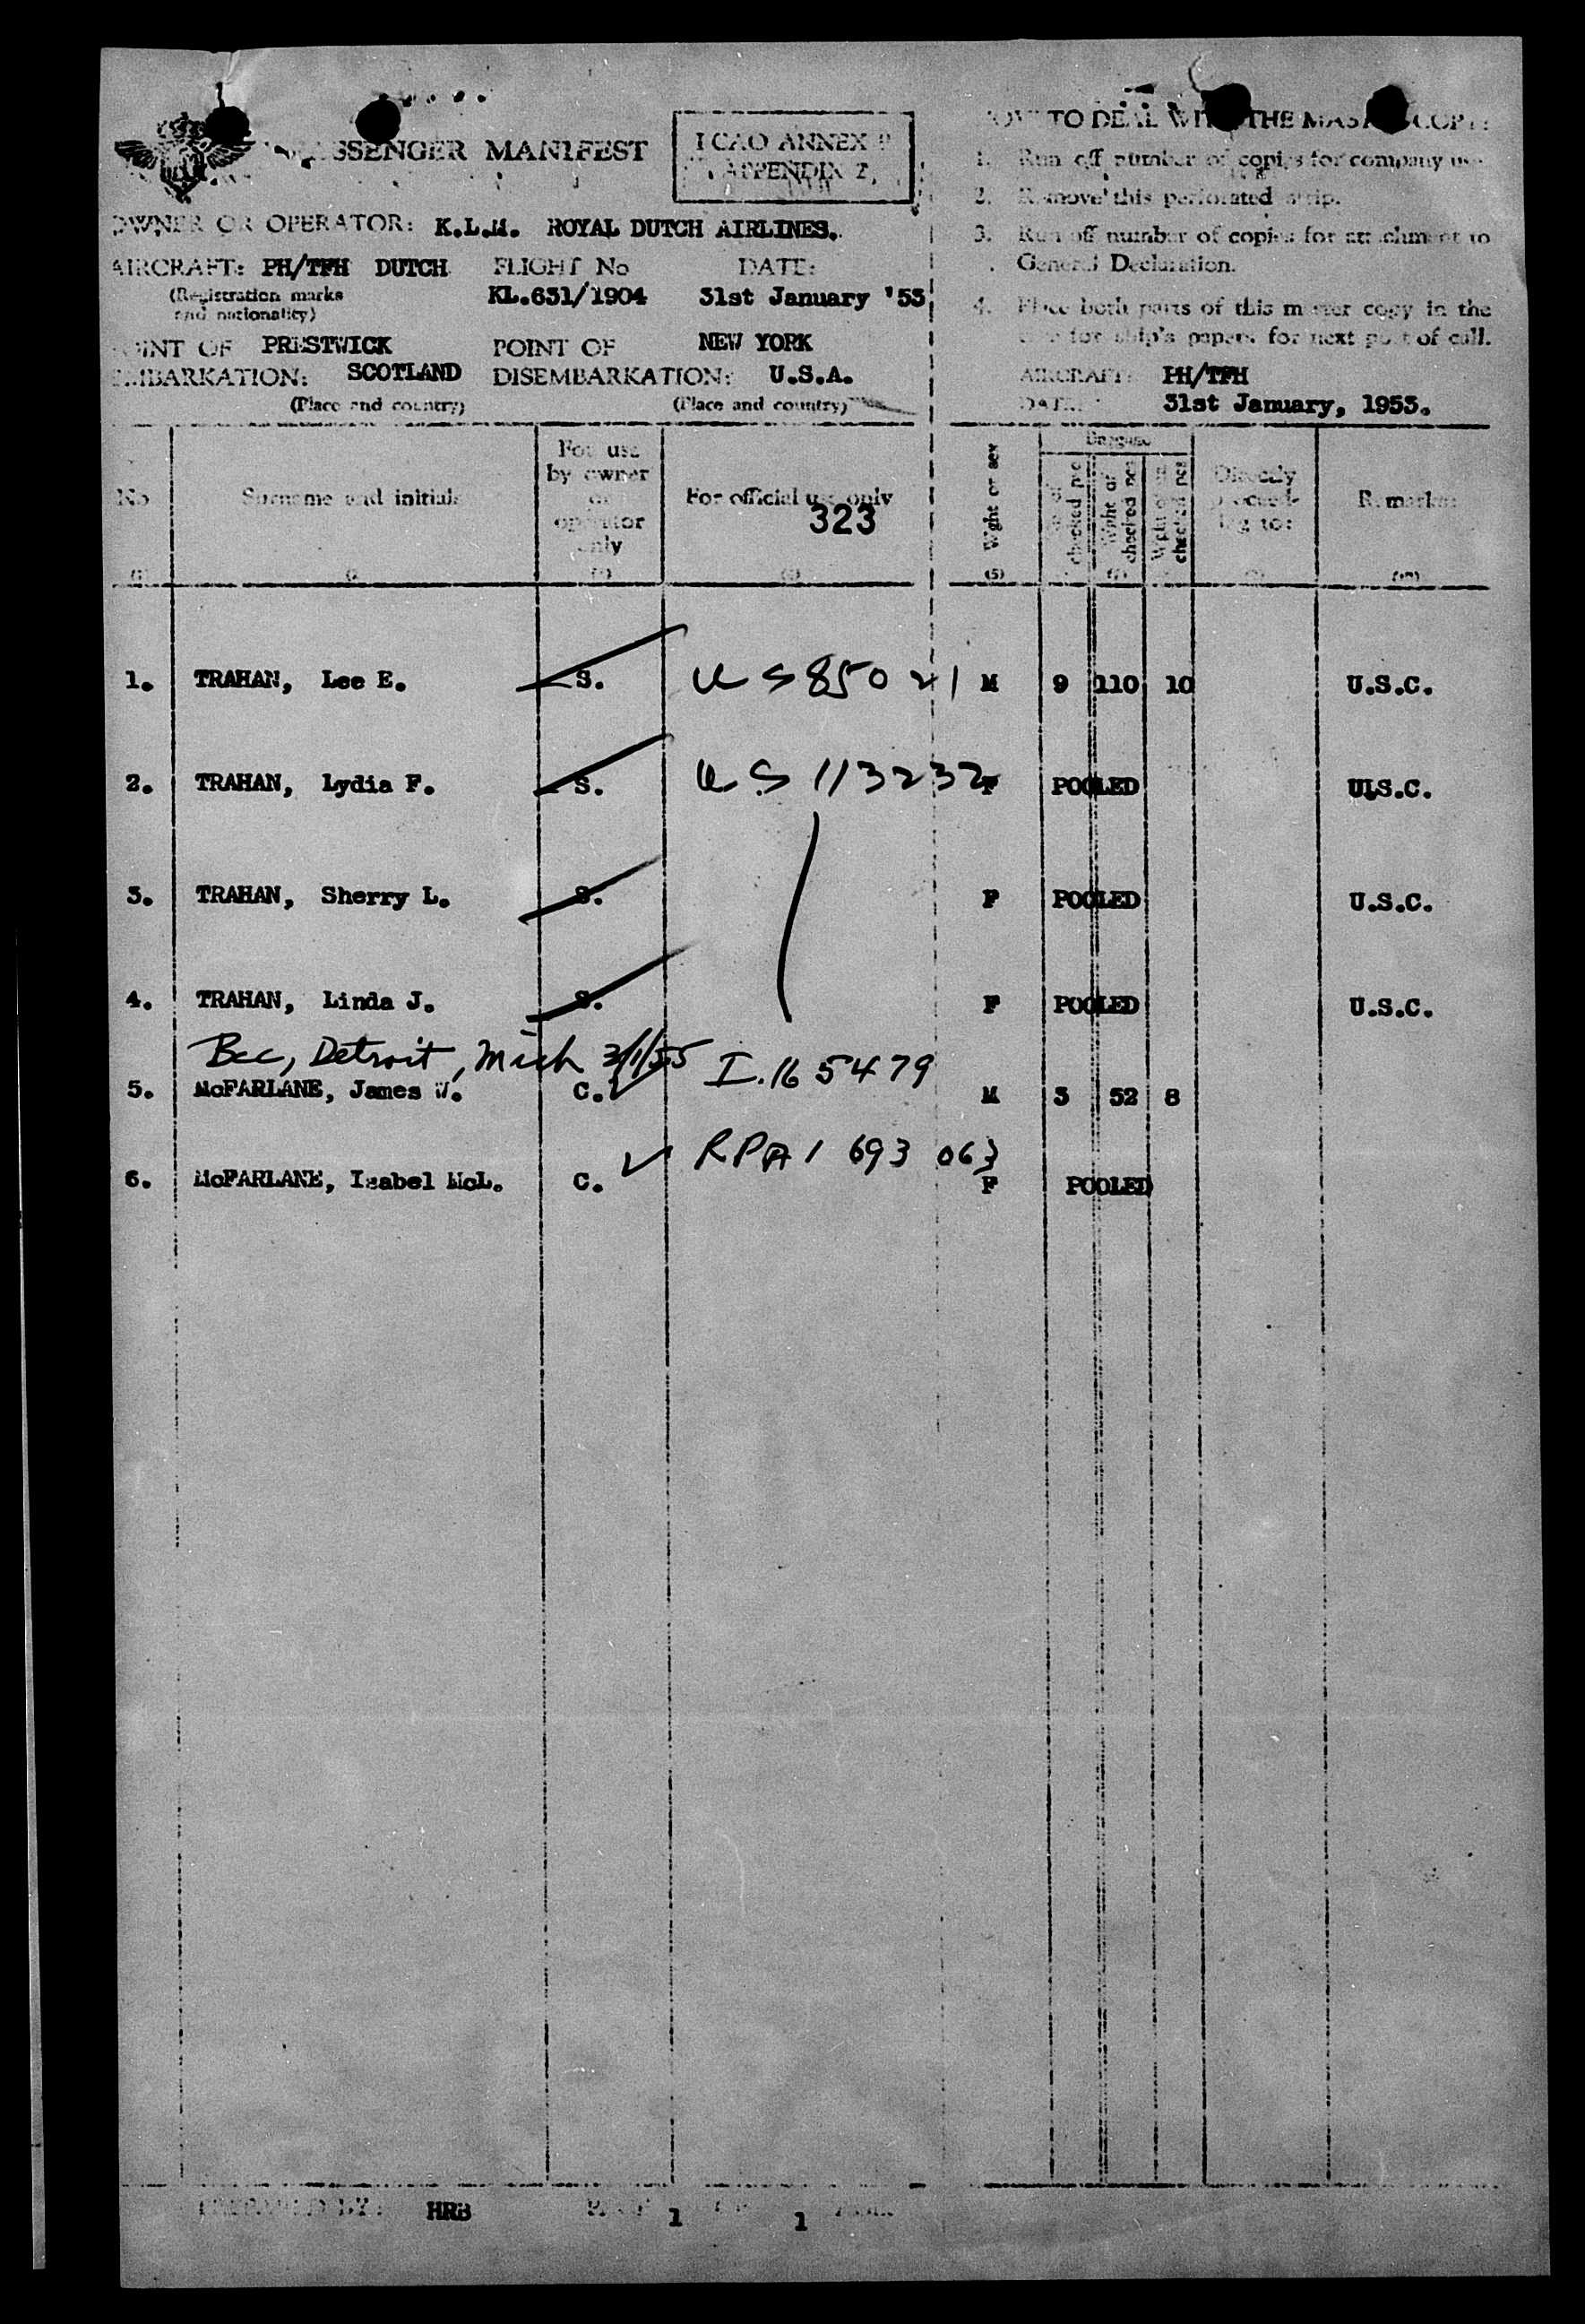 PASSENGER MANIFEST
I CAO ANNEX 9
APPENDIX 2,
OWNER OR OPERATOR: K.L.M. ROYAL DUTCH AIRLINES.
AIRCRAFT: PH/TFH DUTCH FLIGHT No DATE:
(Registration marks and nationality) KL.631/1904 31st January '53
POINT OF PRESTWICK POINT OF NEW YORK
EMBARKATION: SCOTLAND DISEMBARKATION: U.S.A.
(Place and country) (Place and country)
HOW TO DEAL WITH THE MASTER COPY:
1. Run off number of copies for company use
2. Remove this perforated strip.
3. Run off number of copies for attachment to
General Declaration.
4. Place both parts of this master copy in the
for ship's papers for next port of call.
AIRCRAFT: PH/TFH
DATE: 31st January, 1953.
No Surname and initials For use by owner or operator only For official use only Wght or sex Baggage Directly proceeding to: Remarks
323
(5)
1. TRAHAN, Lee E. S. US 85021 M 9 110 10 U.S.C.
2. TRAHAN, Lydia F. S. US 113232 F POOLED U.S.C.
3. TRAHAN, Sherry L. S. F POOLED U.S.C.
4. TRAHAN, Linda J. S. F POOLED U.S.C.
Bec, Detroit, Mich 2/1/55
5. McFARLANE, James W. C. I.165479 M 3 52 8
6. McFARLANE, Isabel McL. C. RPA1 693 063 F POOLED
PREPARED BY: HRB PAGE 1 OF 1 PAGES